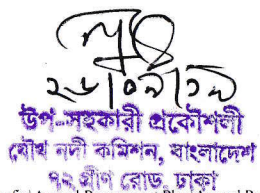 ২৬/০৯/১৯
উপ-সহকারী প্রকৌশলী
যৌথ নদী কমিশন, বাংলাদেশ
৭২ গ্রীণ রোড, ঢাকা